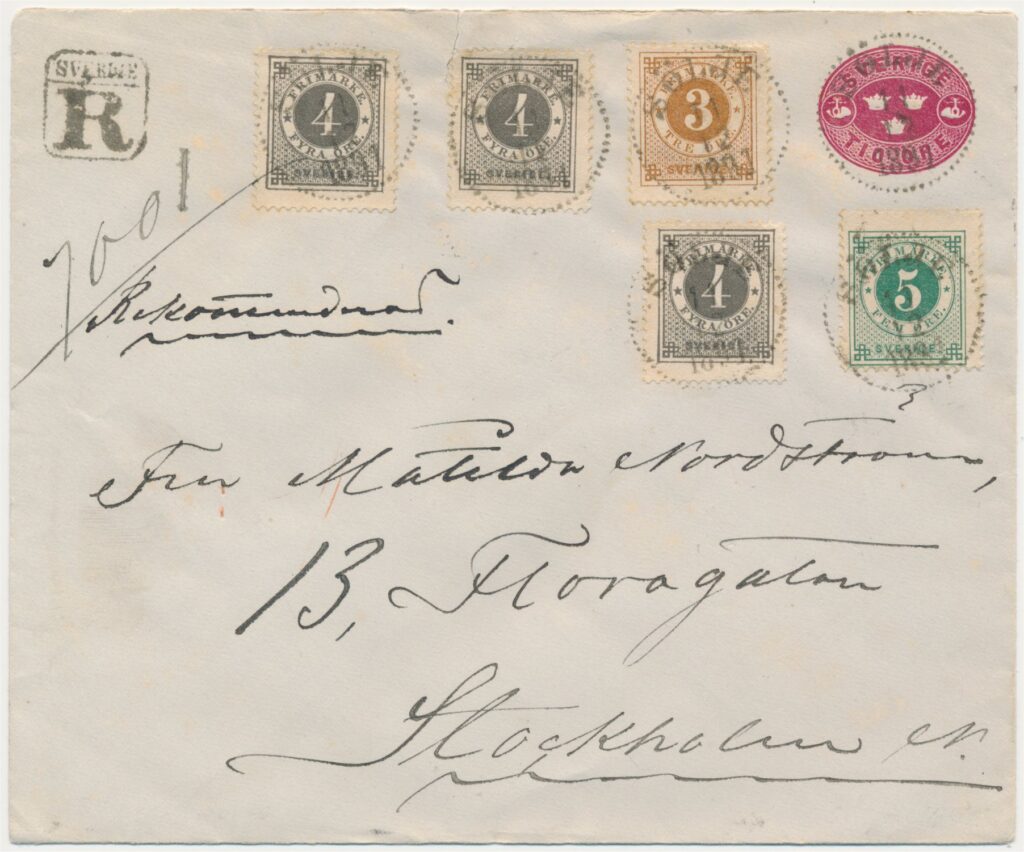 SVERIGE
R
FRIMÄRKE
4
FYRA ÖRE.
SVERIGE.
FRIMÄRKE
4
FYRA ÖRE.
SVERIGE.
FRIMÄRKE
3
TRE ÖRE.
SVERIGE.
SVERIGE
TIO ÖRE
FRIMÄRKE
4
FYRA ÖRE.
SVERIGE.
FRIMÄRKE
5
FEM ÖRE.
SVERIGE.
Rekommenderad.
Fru Matilda Nordström,
13, Floragatan
Stockholm N.